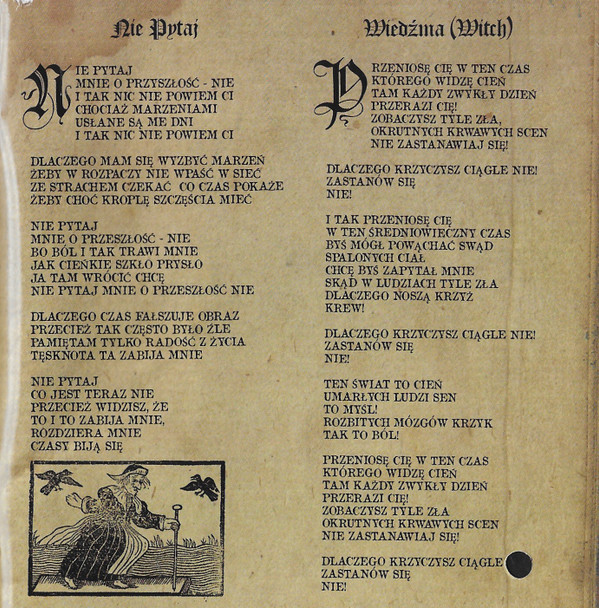 Nie Pytaj
NIE PYTAJ
MNIE O PRZYSZŁOŚĆ - NIE
I TAK NIC NIE POWIEM CI
CHOCIAŻ MARZENIAMI
USŁANE SĄ ME DNI
I TAK NIC NIE POWIEM CI
DLACZEGO MAM SIĘ WYZBYĆ MARZEŃ
ŻEBY W ROZPACZY NIE WPAŚĆ W SIEĆ
ZE STRACHEM CZEKAĆ CO CZAS POKAŻE
ŻEBY CHOĆ KROPLĘ SZCZĘŚCIA MIEĆ
NIE PYTAJ
MNIE O PRZESZŁOŚĆ - NIE
BO BÓL I TAK TRAWI MNIE
JAK CIEŃKIE SZKŁO PRYSŁO
JA TAM WRÓCIĆ CHCĘ
NIE PYTAJ MNIE O PRZESZŁOŚĆ NIE
DLACZEGO CZAS FAŁSZUJE OBRAZ
PRZECIEŻ TAK CZĘSTO BYŁO ŹLE
PAMIĘTAM TYLKO RADOŚĆ Z ŻYCIA
TĘSKNOTA TA ZABIJA MNIE
NIE PYTAJ
CO JEST TERAZ NIE
PRZECIEŻ WIDZISZ, ŻE
TO I TO ZABIJA MNIE,
ROZDZIERA MNIE
CZASY BIJĄ SIĘ
Wiedźma (Witch)
PRZENIOSĘ CIĘ W TEN CZAS
KTÓREGO WIDZĘ CIEŃ
TAM KAŻDY ZWYKŁY DZIEŃ
PRZERAZI CIĘ!
ZOBACZYSZ TYLE ZŁA,
OKRUTNYCH KRWAWYCH SCEN
NIE ZASTANAWIAJ SIĘ!
DLACZEGO KRZYCZYSZ CIĄGLE NIE!
ZASTANÓW SIĘ
NIE!
I TAK PRZENIOSĘ CIĘ
W TEN ŚREDNIOWIECZNY CZAS
BYŚ MÓGŁ POWĄCHAĆ SWĄD
SPALONYCH CIAŁ
CHCĘ BYŚ ZAPYTAŁ MNIE
SKĄD W LUDZIACH TYLE ZŁA
DLACZEGO NOSZĄ KRZYŻ
KREW!
DLACZEGO KRZYCZYSZ CIĄGLE NIE!
ZASTANÓW SIĘ
NIE!
TEN ŚWIAT TO CIEŃ
UMARŁYCH LUDZI SEN
TO MYŚL!
ROZBITYCH MÓZGÓW KRZYK
TAK TO BÓL!
PRZENIOSĘ CIĘ W TEN CZAS
KTÓREGO WIDZĘ CIEŃ
TAM KAŻDY ZWYKŁY DZIEŃ
PRZERAZI CIĘ!
ZOBACZYSZ TYLE ZŁA
OKRUTNYCH KRWAWYCH SCEN
NIE ZASTANAWIAJ SIĘ!
DLACZEGO KRZYCZYSZ CIĄGLE
ZASTANÓW SIĘ
NIE!